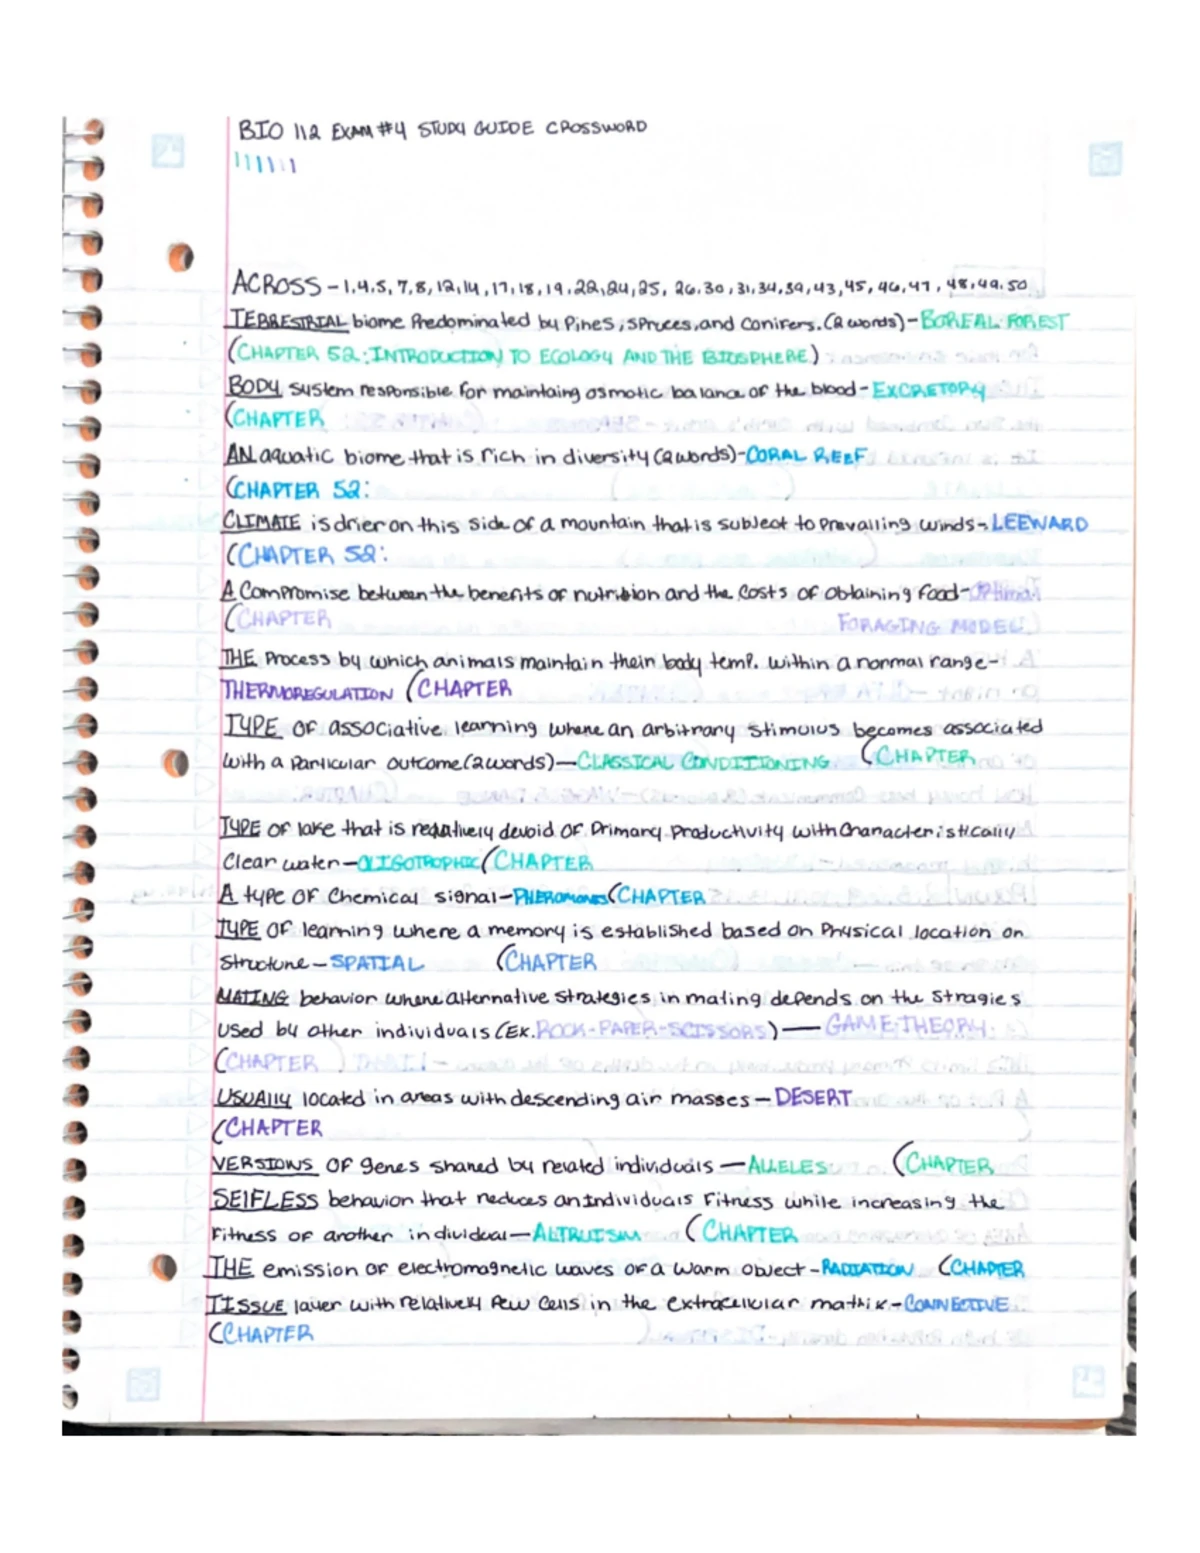 BIO 112 EXAM #4 STUDY GUIDE CROSSWORD
ACROSS - 1,4,5,7,8,12,14,17,18,19,22,24,25, 26,30,31,34,39,43,45,46,47,48,49,50
TERRESTRIAL biome Predominated by Pines, spruces, and conifers. (2 words) - BOREAL FOREST
(CHAPTER 52: INTRODUCTION TO ECOLOGY AND THE BIOSPHERE)
BODY system responsible for maintaing osmotic balance of the blood - EXCRETORY
(CHAPTER
AN aquatic biome that is rich in diversity (2 words) - CORAL REEF
(CHAPTER 52:
CLIMATE is drier on this side of a mountain that is subject to prevailing winds - LEEWARD
(CHAPTER 52:
A compromise between the benefits of nutrition and the costs of obtaining food - Optimal
(CHAPTER FORAGING MODEL
THE Process by which animals maintain their body temp. within a normal range -
THERMOREGULATION (CHAPTER
TYPE OF associative learning where an arbitrary stimulus becomes associated
with a particular outcome (2 words) — CLASSICAL CONDITIONING (CHAPTER
TYPE OF lake that is relatively devoid of Primary Productivity with characteristically
clear water - OLIGOTROPHIC (CHAPTER
A type OF Chemical signal - PHEROMONES (CHAPTER
TYPE OF learning where a memory is established based on Physical location or
structure - SPATIAL (CHAPTER
MATING behavior where alternative strategies in mating depends on the stragies
used by other individuals (EX. ROCK-PAPER-SCISSORS) — GAME THEORY
(CHAPTER
USUALLY located in areas with descending air masses - DESERT
(CHAPTER
VERSIONS OF genes shared by related individuals — ALLELES (CHAPTER
SELFLESS behavior that reduces an individuals fitness while increasing the
fitness of another individual — ALTRUISM (CHAPTER
THE emission of electromagnetic waves of a warm object - RADIATION (CHAPTER
TISSUE layer with relatively few cells in the extracellular matrix - CONNECTIVE
(CHAPTER